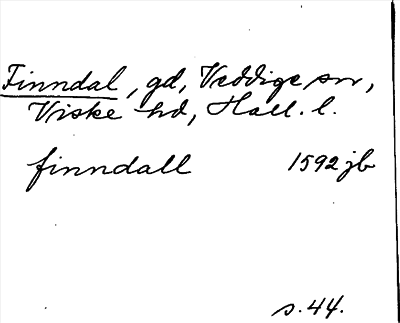 Finndal, gd, Veddige sn,
Viske hd, Hall. l.
finndall 1592 jb
s. 44.